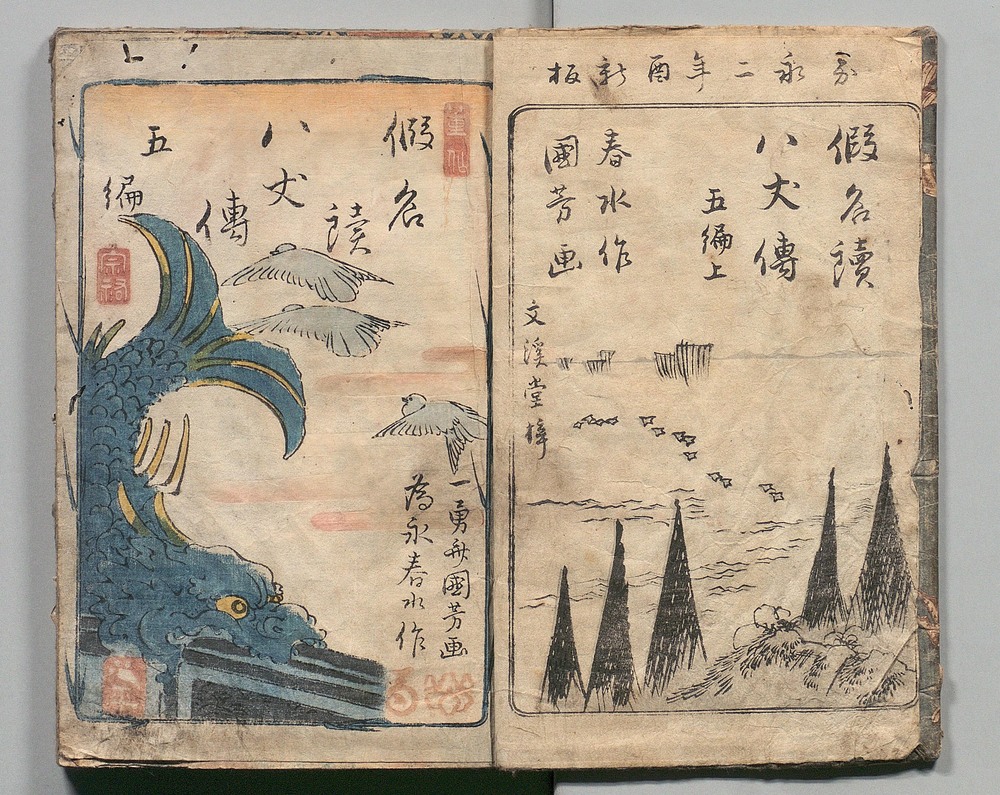 嘉永二年酉新板
假名讀
八犬傳
五編上
春水作
國芳画
文溪堂梓
假名
讀
八犬
傳
五
編
一勇齋國芳画
為永春水作
宗
上